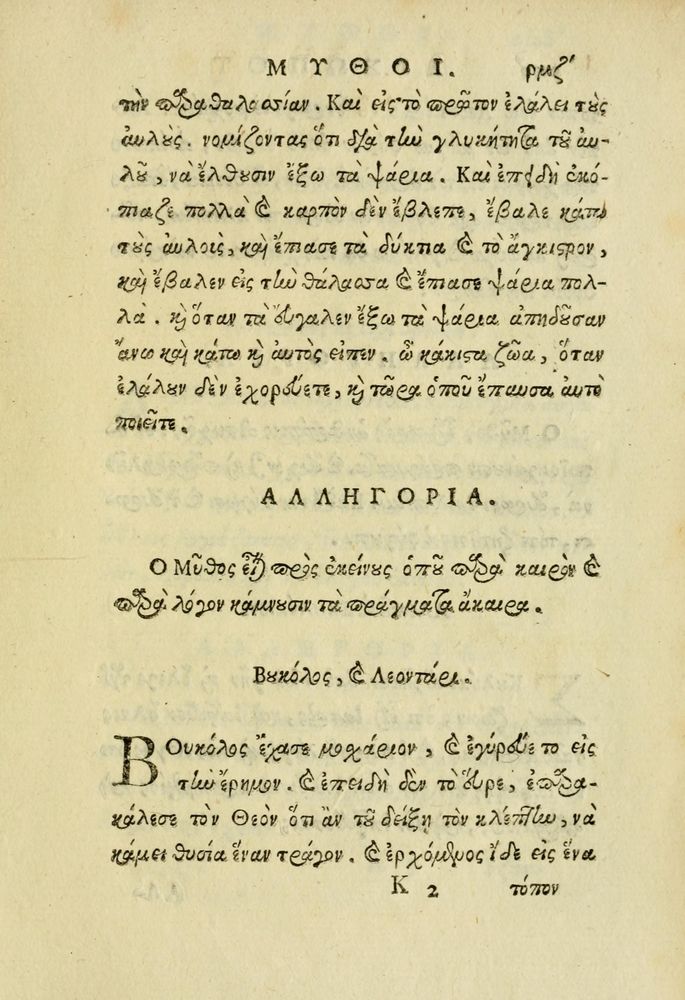 ΜΥΘΟΙ. ρμζʹ
τὴν παραθαλασσίαν. Καὶ εἰς τὸ πρῶτον ἐλάλει τοὺς
ἀυλούς. νομίζοντας ὅτι διὰ τὴν γλυκήτητα τοῦ ἀυ-
λοῦ, νὰ ἔλθουσιν ἔξω τὰ ψάρια. Καὶ ἐπειδὴ ἐκό-
πιαζε πολλὰ καὶ καρπὸν δὲν ἔβλεπε, ἔβαλε κάπου
τοὺς ἀυλοὶς, καὶ ἔπιασε τὰ δύκτια καὶ τὸ ἄγκιστρον,
καὶ ἔβαλεν εἰς τὴν θάλασσα καὶ ἔπιασε ψάρια πολ-
λὰ. καὶ ὅταν τὰ ἔυγαλεν ἔξω τὰ ψάρια ἀπηδοῦσαν
ἄνω καὶ κάτω καὶ ἀυτὸς εἶπεν. ὦ κάκιστα ζῶα, ὅταν
ἐλάλουν δὲν ἐχορεύετε, καὶ τῶρα ὁποῦ ἔπαυσα ἀυτὸ
ποιεῖτε.
ΑΛΛΗΓΟΡΙΑ.
Ο Μῦθος εἶναι πρὸς ἐκείνους ὁποῦ παρὰ καιρὸν καὶ
παρὰ λόγον κάμνουσιν τὰ πράγματα ἄκαιρα.
Βουκόλος, καὶ Λεοντάρι.
ΒΟυκόλος ἔχασε μοχάριον, καὶ ἐγύρευε το εἰς
τὴν ἔρημον. καὶ ἐπειδὴ δὲν τὸ εὗρε, ἐπαρα-
κάλεσε τὸν Θεὸν ὅτι ἂν τοῦ δείξῃ τὸν κλέπτην, νὰ
κάμει θυσία ἕναν τράγον. καὶ ἐρχόμενος ἶδε εἰς ἕνα
Κ 2 τόπον